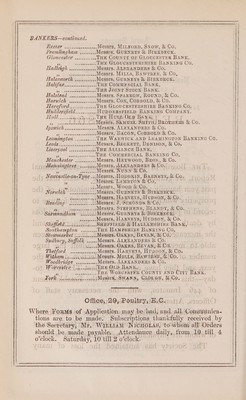 BANKERS—continued.
Exeter Messrs. MILFORD, SNOW, & Co.
Framlingham Messrs. GURNEYS & BIRKBECK.
Gloucester THE COUNTY OF GLOUCESTER BANK.
" THE GLOUCESTERSHIRE BANKING CO.
Hadleigh Messrs. ALEXANDERS & Co.
" Messrs. MILLS, BAWTREE, & Co.
Halesworth Messrs. GURNEYS & BIRKBECK.
Halifax THE COMMERCIAL BANK.
" THE JOINT STOCK BANK.
Halstead Messrs. SPARROW, ROUND, & Co.
Harwich Messrs. COX, COBBOLD, & Co.
Hereford THE GLOUCESTERSHIRE BANKING CO.
Huddersfield HUDDERSFIELD BANKING COMPANY.
Hull THE HULL OLD BANK.
" Messrs. SAMUEL SMITH, BROTHERS & Co.
Ipswich Messrs. ALEXANDERS & Co.
" Messrs. BACON, COBBOLD & Co.
Leamington THE WARWICK AND LEAMINGTON BANKING CO.
Leeds Messrs. BECKETT, DENISON, & Co.
Liverpool THE ALLIANCE BANK.
" THE COMMERCIAL BANKING CO.
Manchester Messrs. HEYWOOD, BROS., & Co.
Manningtree Messrs. ALEXANDERS & Co.
" Messrs. NUNN & Co.
Newcastle-on-Tyne Messrs. HODGKIN, BARNETT, & Co.
" Messrs. LAMBTON & Co.
" Messrs. WOODS & Co.
Norwich Messrs. GURNEYS & BIRKBECK.
" Messrs. HARVEYS, HUDSON, & Co.
Reading Messrs. J. SIMONDS & Co.
" Messrs. STEPHENS, BLANDY, & Co.
Saxmundham Messrs. GURNEYS & BIRKBECK.
" Messrs. HARVEYS, HUDSON, & Co.
Sheffield SHEFFIELD & HALLAMSHIRE BANK.
Southampton THE HAMPSHIRE BANKING CO.
Stowmarket Messrs. OAKES, BEVAN, & Co.
Sudbury, Suffolk Messrs. ALEXANDERS & Co.
" Messrs. OAKES, BEVAN, & Co.
Thetford Messrs. HARVEYS, HUDSON, & Co.
Witham Messrs. MILLS, BAWTREE, & Co.
Woodbridge Messrs. ALEXANDERS & Co.
Worcester THE OLD BANK.
" THE WORCESTER COUNTY AND CITY BANK.
York Messrs. SWANN, CLOUGH, & Co.
Office, 29, Poultry, E.C.
Where FORMS of Application may be had, and all Communica-
tions are to be made. Subscriptions thankfully received by
the Secretary, Mr. WILLIAM NICHOLAS, to whom all Orders
should be made payable. Attendance daily, from 10 till 4
o'clock. Saturday, 10 till 2 o'clock.